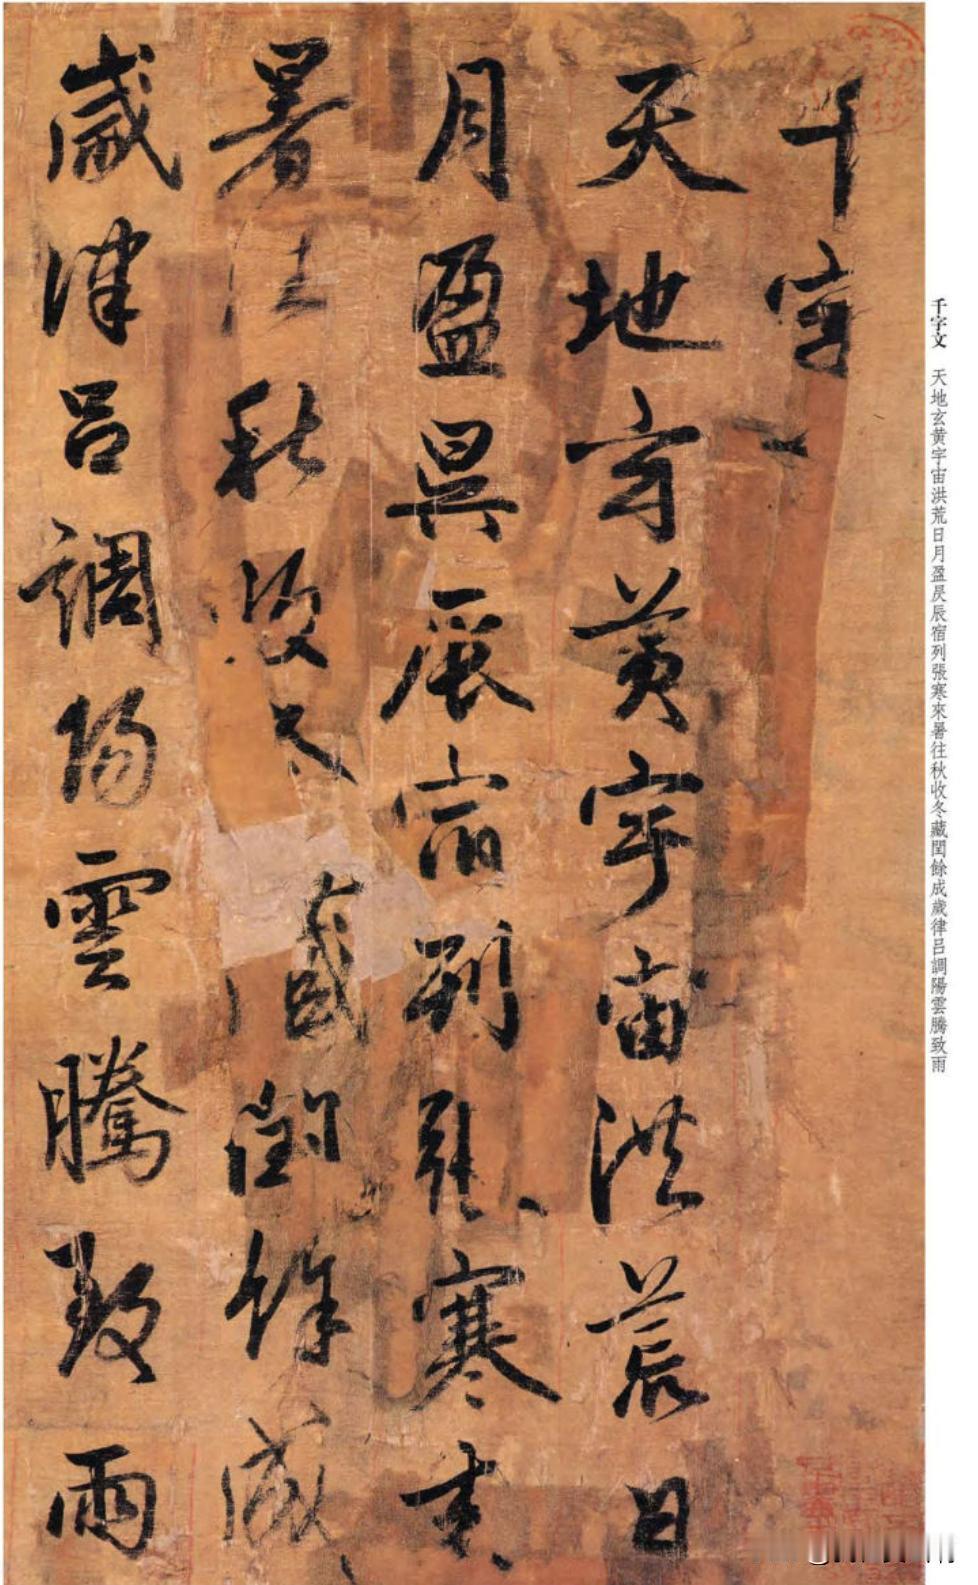 千字
天地玄黃宇宙洪荒日
月盈昃辰宿列張寒來
暑往秋收冬藏閏餘成
歲律呂調陽雲騰致雨
千字文 天地玄黄宇宙洪荒日月盈昃辰宿列張寒來暑往秋收冬藏閏餘成歲律呂調陽雲騰致雨